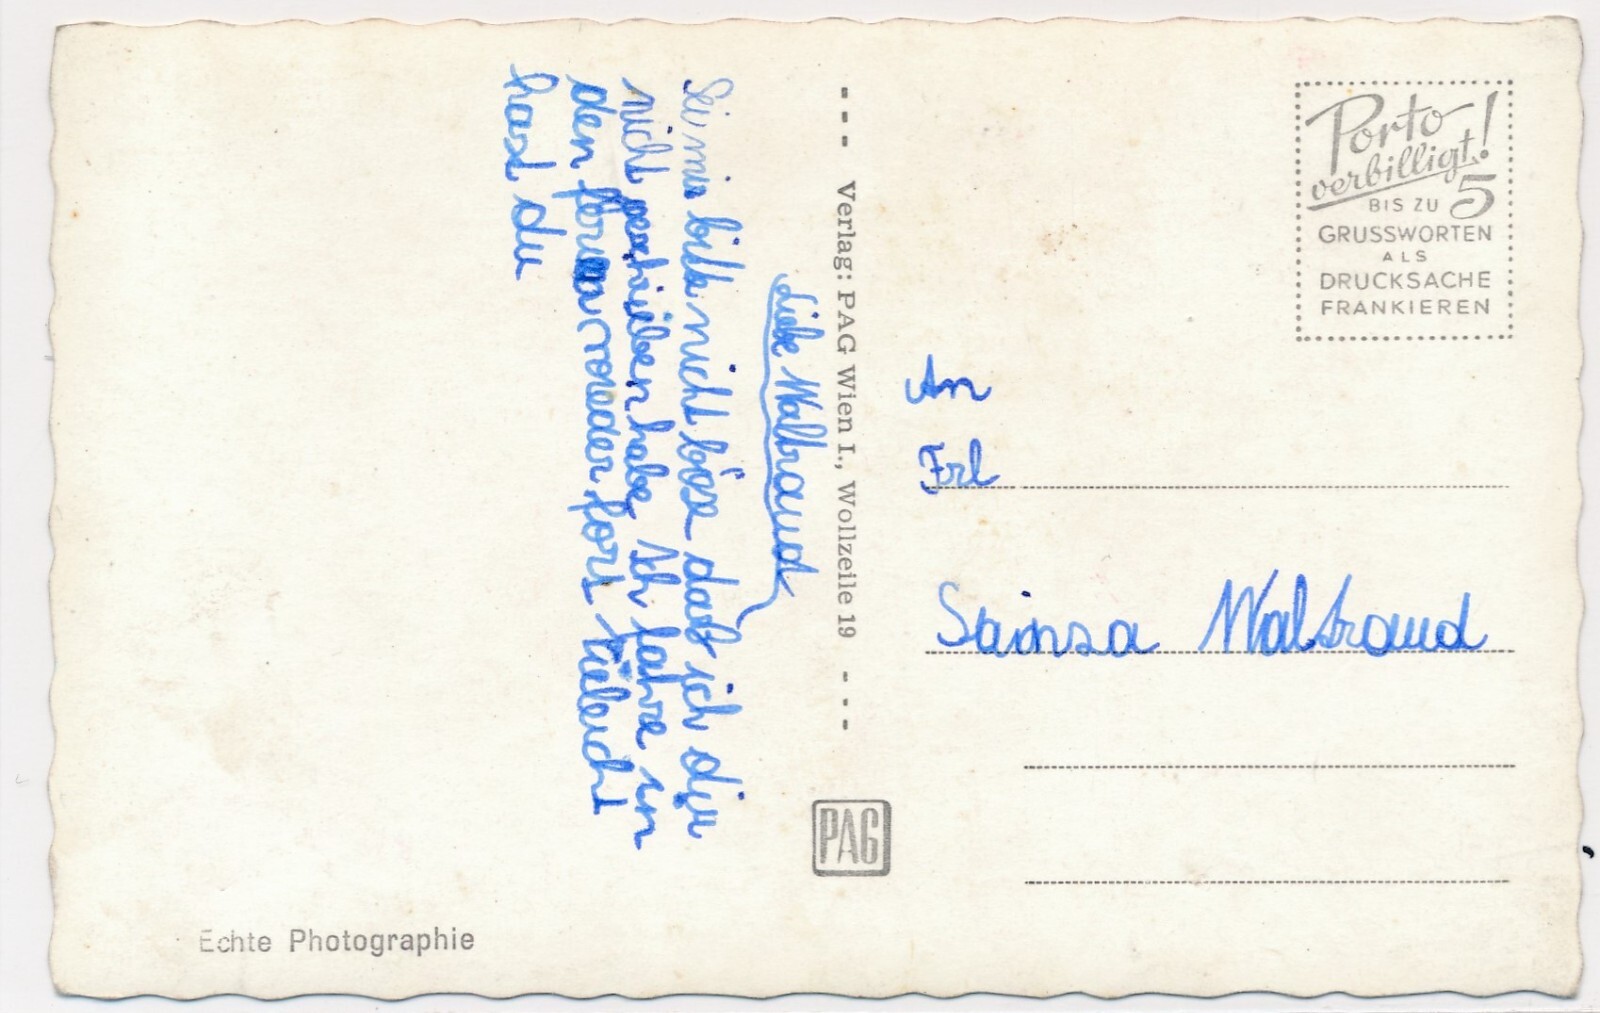 Liebe Waltraud
Sei mir bitte nicht böse daß ich dir
nicht geschrieben habe Ich fahre in
den ferien wieder fort vieleicht
hast du
Verlag: PAG Wien I., Wollzeile 19
PAG
Echte Photographie
Porto
verbilligt!
BIS ZU 5
GRUSSWORTEN
ALS
DRUCKSACHE
FRANKIEREN
An
Frl
Waltraud